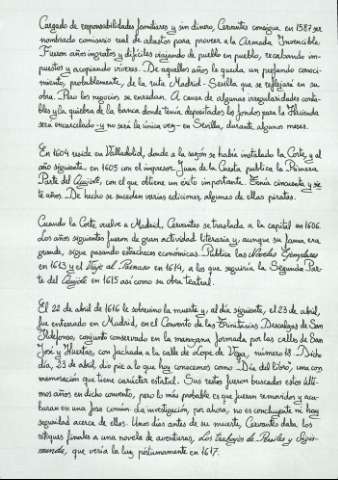 Cargado de responsabilidades familiares y sin dinero, Cervantes consigue en 1587 ser
nombrado comisario real de abastos para proveer a la Armada Invencible.
Fueron años ingratos y difíciles viajando de pueblo en pueblo, recabando im-
puestos y acopiando víveres. De aquellos años le queda un profundo conoci-
miento, probablemente, de la ruta Madrid-Sevilla que se reflejará en su
obra. Pero los negocios se enredan. A causa de algunas irregularidades conta-
bles y la quiebra de la banca donde tenía depositados los fondos para la Hacienda
será encarcelado -y no será la única vez- en Sevilla, durante algunos meses.
En 1604 reside en Valladolid, donde a la sazón se había instalado la Corte, y al
año siguiente, en 1605 con el impresor Juan de la Cuesta, publica la Primera
Parte del Quijote, con el que obtiene un éxito importante. Tenía cincuenta y sie
te años. De hecho se suceden varias ediciones, algunas de ellas piratas.
Cuando la Corte vuelve a Madrid, Cervantes se traslada a la capital en 1606.
Los años siguientes fueron de gran actividad literaria y, aunque su fama era
grande, sigue pasando estrecheces económicas. Publica las Novelas Ejemplares
en 1613 y el Viaje al Parnaso en 1614, a los que seguiría la Segunda Par-
te del Quijote en 1615 así como su obra teatral.
El 22 de abril de 1616 le sobrevino la muerte y, al día siguiente, el 23 de abril,
fue enterrado en Madrid, en el Convento de las Trinitarias Descalzas de San
Ildefonso, conjunto conservado en la manzana formada por las calles de San
José y Huertas, con fachada a la calle de Lope de Vega, número 18. Dicho
día, 23 de abril, dio pie a lo que hoy conocemos como "Día del libro", una con-
memoración que tiene carácter estatal. Sus restos fueron buscados estos últi-
mos años en dicho convento, pero lo más probable es que fueran removidos y aca-
baran en una fosa común. La investigación, por ahora, no es concluyente ni hay
seguridad acerca de ellos. Unos días antes de su muerte, Cervantes daba los
retoques finales a una novela de aventuras, Los trabajos de Persiles y Sigis-
munda, que vería la luz, póstumamente en 1617.